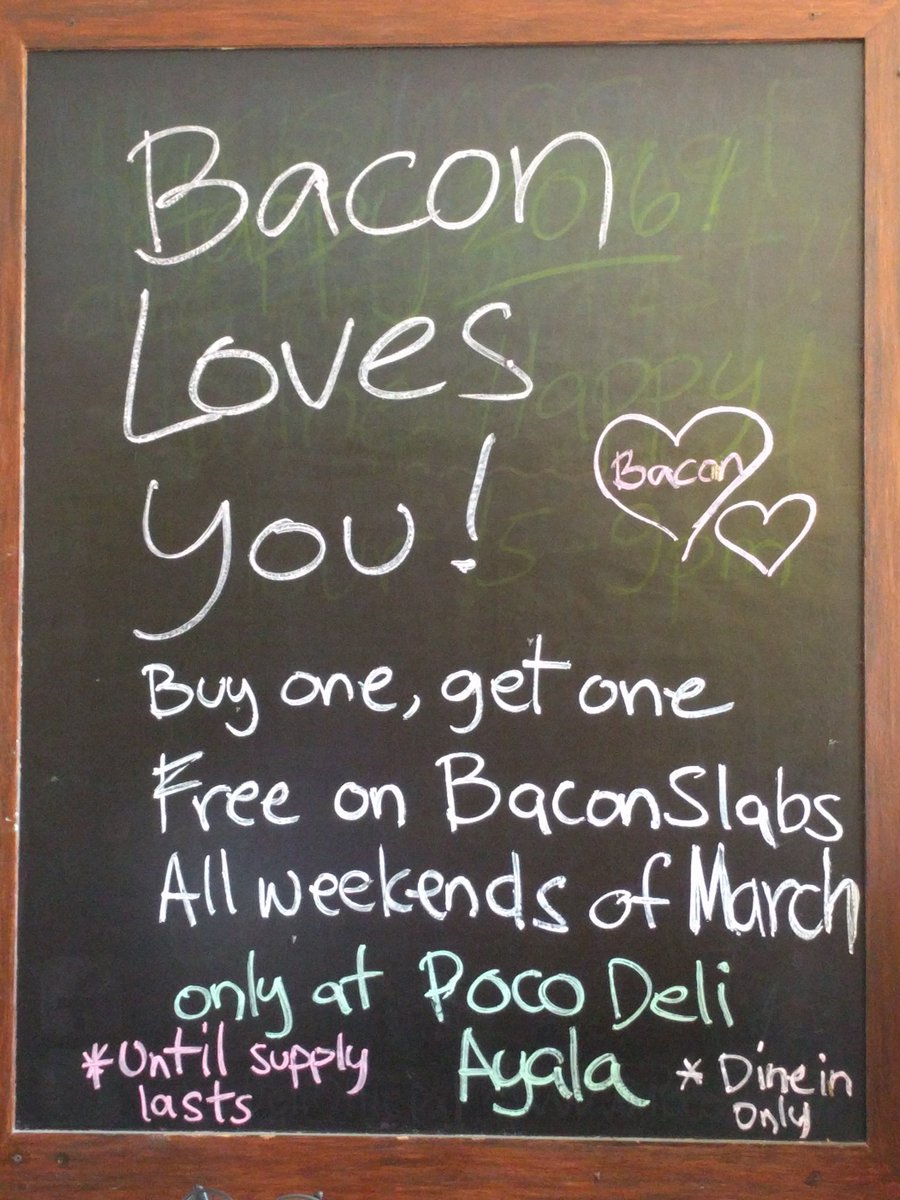 Bacon
Loves
You!
Bacon
Buy one, get one
Free on BaconSlabs
All weekends of March
only at Poco Deli
Ayala
*Until supply
lasts
* Dine in
only
Happy
5-9pm